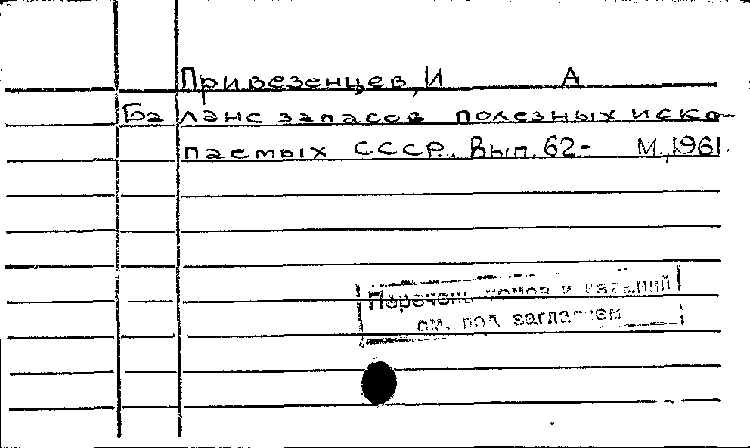 Привезенцев, И А
Баланс запасов полезных иско-
паемых СССР. Вып. 62- М., 1961.
Перечень томов и изданий
см. под заглавием